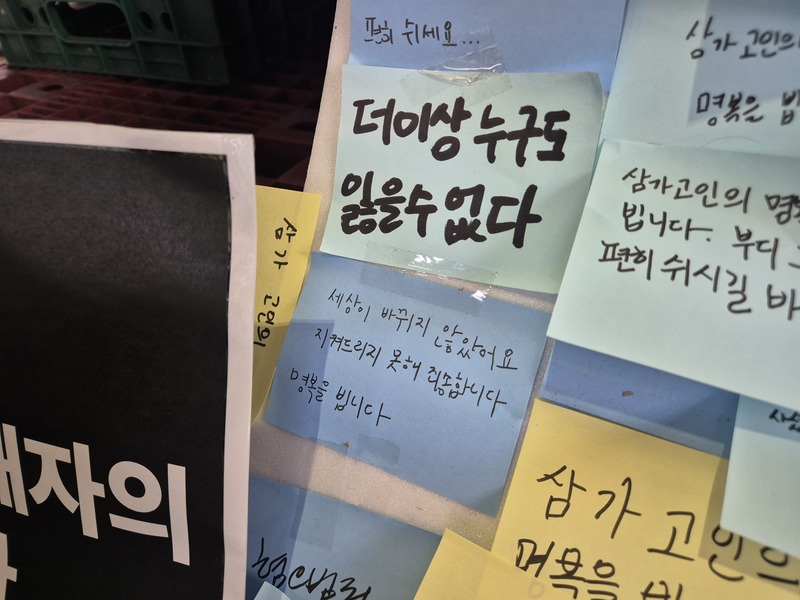 편히 쉬세요...
더이상 누구도
잃을수 없다
삼가 고인의
명복을
삼가고인의
빕니다. 부디
편히 쉬시길
삼가 고인의
세상이 바뀌지 않았어요
지켜드리지 못해 죄송합니다
명복을 빕니다
자의
삼가 고인의
명복을